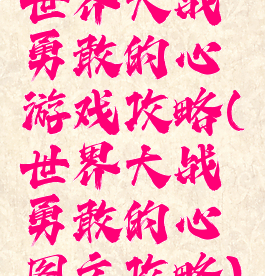 世界大战
勇敢的心
游戏攻略(
世界大战
勇敢的心
图文攻略)